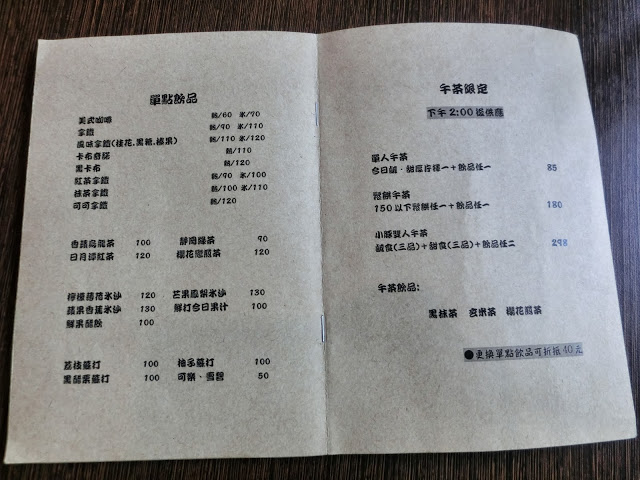 單點飲品
美式咖啡 熱/60 冰/70
拿鐵 熱/90 冰/110
風味拿鐵(桂花,黑糖,榛果) 熱/110 冰/120
卡布奇諾 熱/110
黑卡布 熱/120
紅茶拿鐵 熱/90 冰/100
抹茶拿鐵 熱/100 冰/110
可可拿鐵 熱/120
杏韻烏龍茶 100 靜岡綠茶 90
日月潭紅茶 120 櫻花煎茶 120
檸檬薄荷冰沙 120 芒果鳳梨冰沙 130
蘋果香蕉冰沙 130 鮮打今日果汁 100
鮮果醋飲 100
荔枝蘇打 100 柚子蘇打 100
黑醋栗蘇打 100 可樂、雪碧 50
午茶限定
下午2:00後供應
單人午茶
今日鹹、甜厚片擇一+飲品任一 85
鬆餅午茶
150以下鬆餅任一+飲品任一 180
小豚雙人午茶
鹹食(三品)+甜食(三品)+飲品任二 298
午茶飲品:
黑抹茶 玄米茶 櫻花煎茶
●更換單點飲品可折抵40元